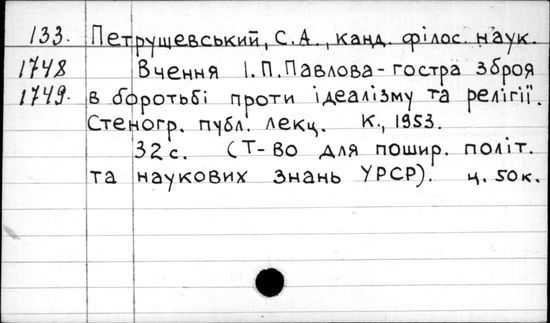 133. Петрушевський, С.А., канд. філос. наук.
1748 Вчення І.П.Павлова - гостра зброя
1749. в боротьбі проти ідеалізму та релігії.
Стеногр. публ. лекц. К., 1953.
32 с. (Т-во для пошир. політ.
та наукових знань УРСР). ц. 50к.